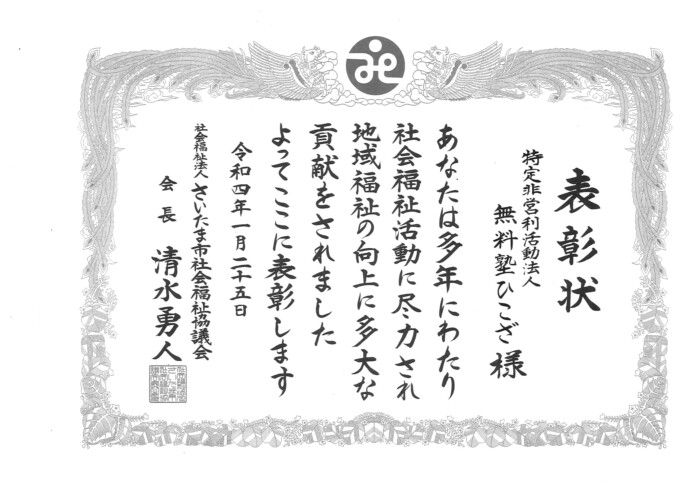 表彰状
特定非営利活動法人
無料塾ひこざ様
あなたは多年にわたり
社会福祉活動に尽力され
地域福祉の向上に多大な
貢献をされました
よってここに表彰します
令和四年一月二十五日
社会福祉法人 さいたま市社会福祉協議会
会長 清水勇人